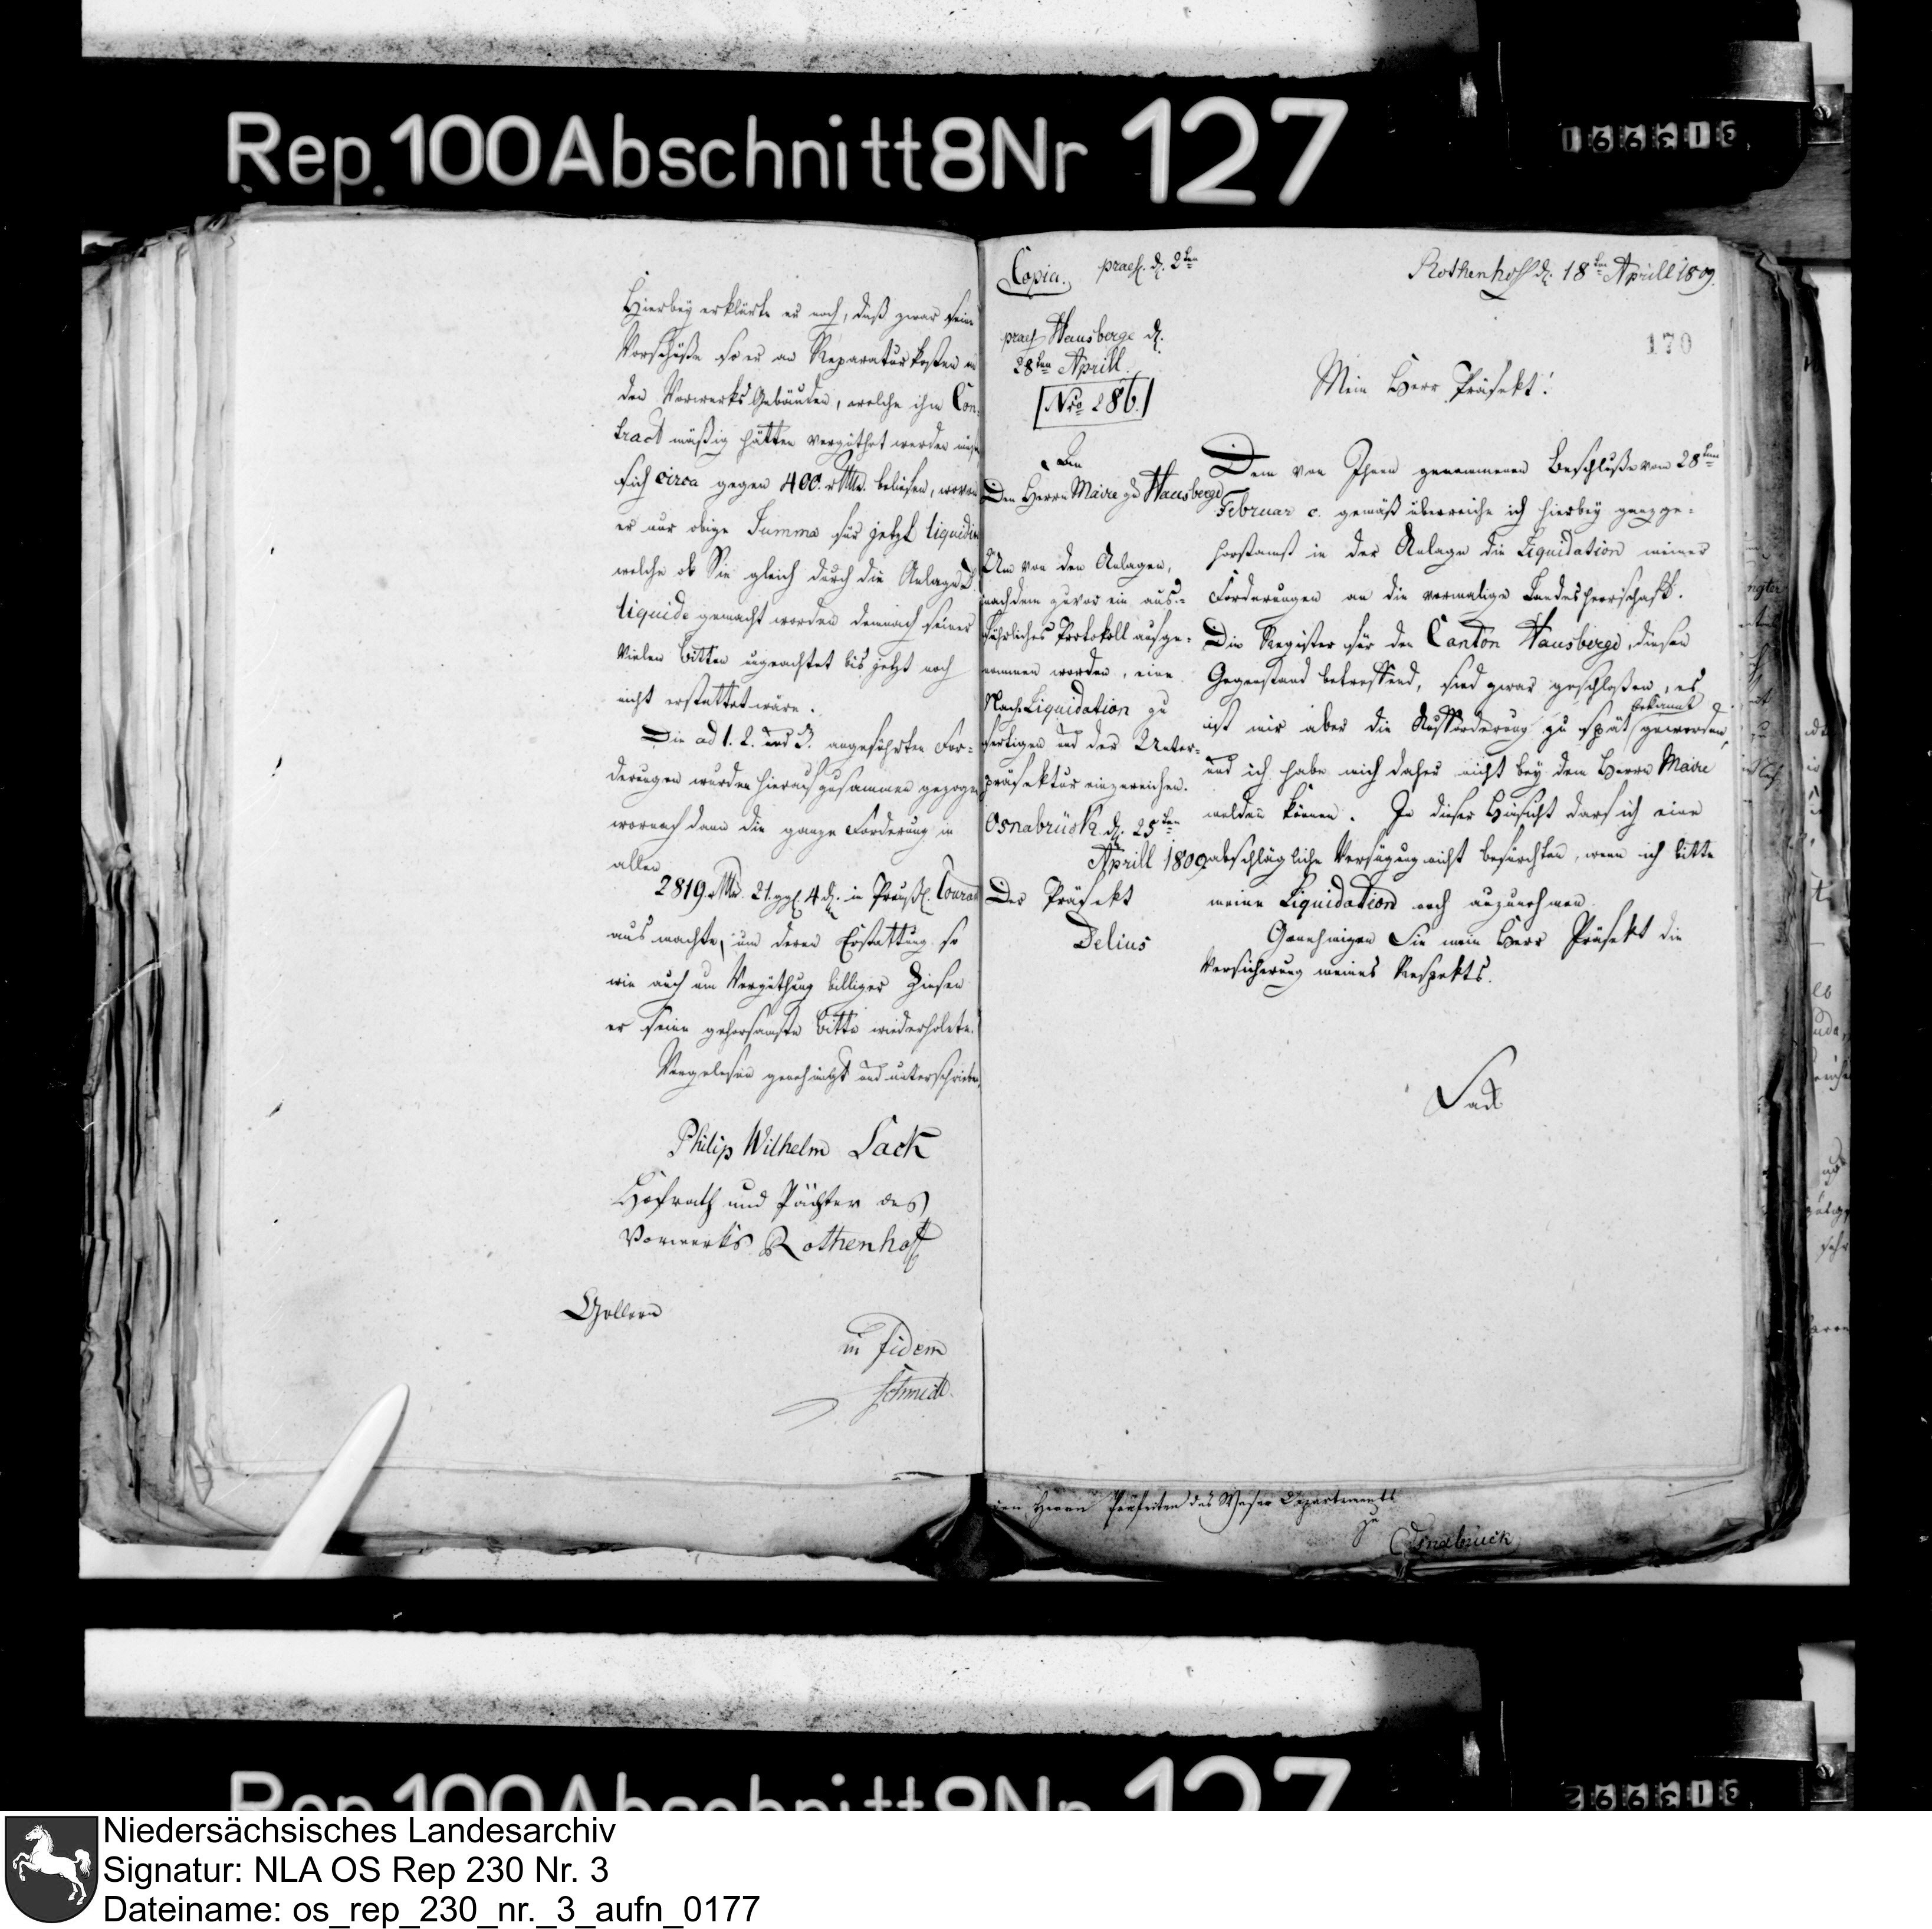 Rep. 100 Abschnitt 8 Nr 127
Hierbey erklärte er noch, daß zwar seine
Vorschüße so er an Reparaturkosten an
den Vorwerks Gebäuden, welche ihm Con-
tract mäßig hätten vergüthet werden müßen
sich circa gegen 400. rthlr. beliefen, wovon
er nur obige Summa für jetzt liquidire
welche ob Sie gleich durch die Anlage
liquide gemacht worden demnach seiner
vielen Bitten ungeachtet bis jetzt noch
nicht erstattet wäre.
Die ad 1. 2. und 3. angeführten For-
derungen wurden hierauf zusammen gezogen
wornach dann die ganze Forderung in
allen
2819. rthlr. 21. ggl. 4 d. in Preuß. Courant
aus machte, um deren Erstattung so
wie auch um Vergüthung billiger Zinsen
er seine gehorsamste Bitte wiederholete.
Vorgelesen genehmigt und unterschrieben
Philip Wilhelm Sack
Hofrath und Pächter des
Vorwerks Rothenhoff
in fidem
Schmidt
Copia. praes. d. 2ten
praes Hausberge d.
28ten Aprill.
Nro 286.
Den Herrn Maire zu Hausberge
Um von den Anlagen,
nachdem zuvor ein aus-
führliches Protokoll aufge-
nommen worden, eine
Nach-Liquidation zu
fertigen und der Unter-
präfektur einzureichen.
Osnabrück d. 25ten
Aprill 1809
Der Präfekt
Delius
Rothenhoff d. 18ten Aprill 1809.
170
Mein Herr Präfekt!
Dem von Ihnen genommenen Beschluße vom 28ten
Februar c. gemäß überreiche ich hierbey ganzge-
horsamst in der Anlage die Liquidation meiner
Forderungen an die vormalige Landesherrschaft.
Die Register für den Canton Hausberge, diesen
Gegenstand betreffend, sind zwar geschloßen, es
ist mir aber die Aufforderung zu spät bekannt geworden,
und ich habe mich daher nicht bey dem Herrn Maire
melden können. In dieser Hinsicht darf ich eine
abschlägliche Verfügung nicht befürchten, wenn ich bitte
meine Liquidation noch anzunehmen
Genehmigen Sie mein Herr Präfekt die
Versicherung meines Respekts.
Sack
den Herrn Präfecten des Weser Departements
zu
Osnabrück
Rep. 100 Abschnitt 8 Nr 127
Niedersächsisches Landesarchiv
Signatur: NLA OS Rep 230 Nr. 3
Dateiname: os_rep_230_nr._3_aufn_0177